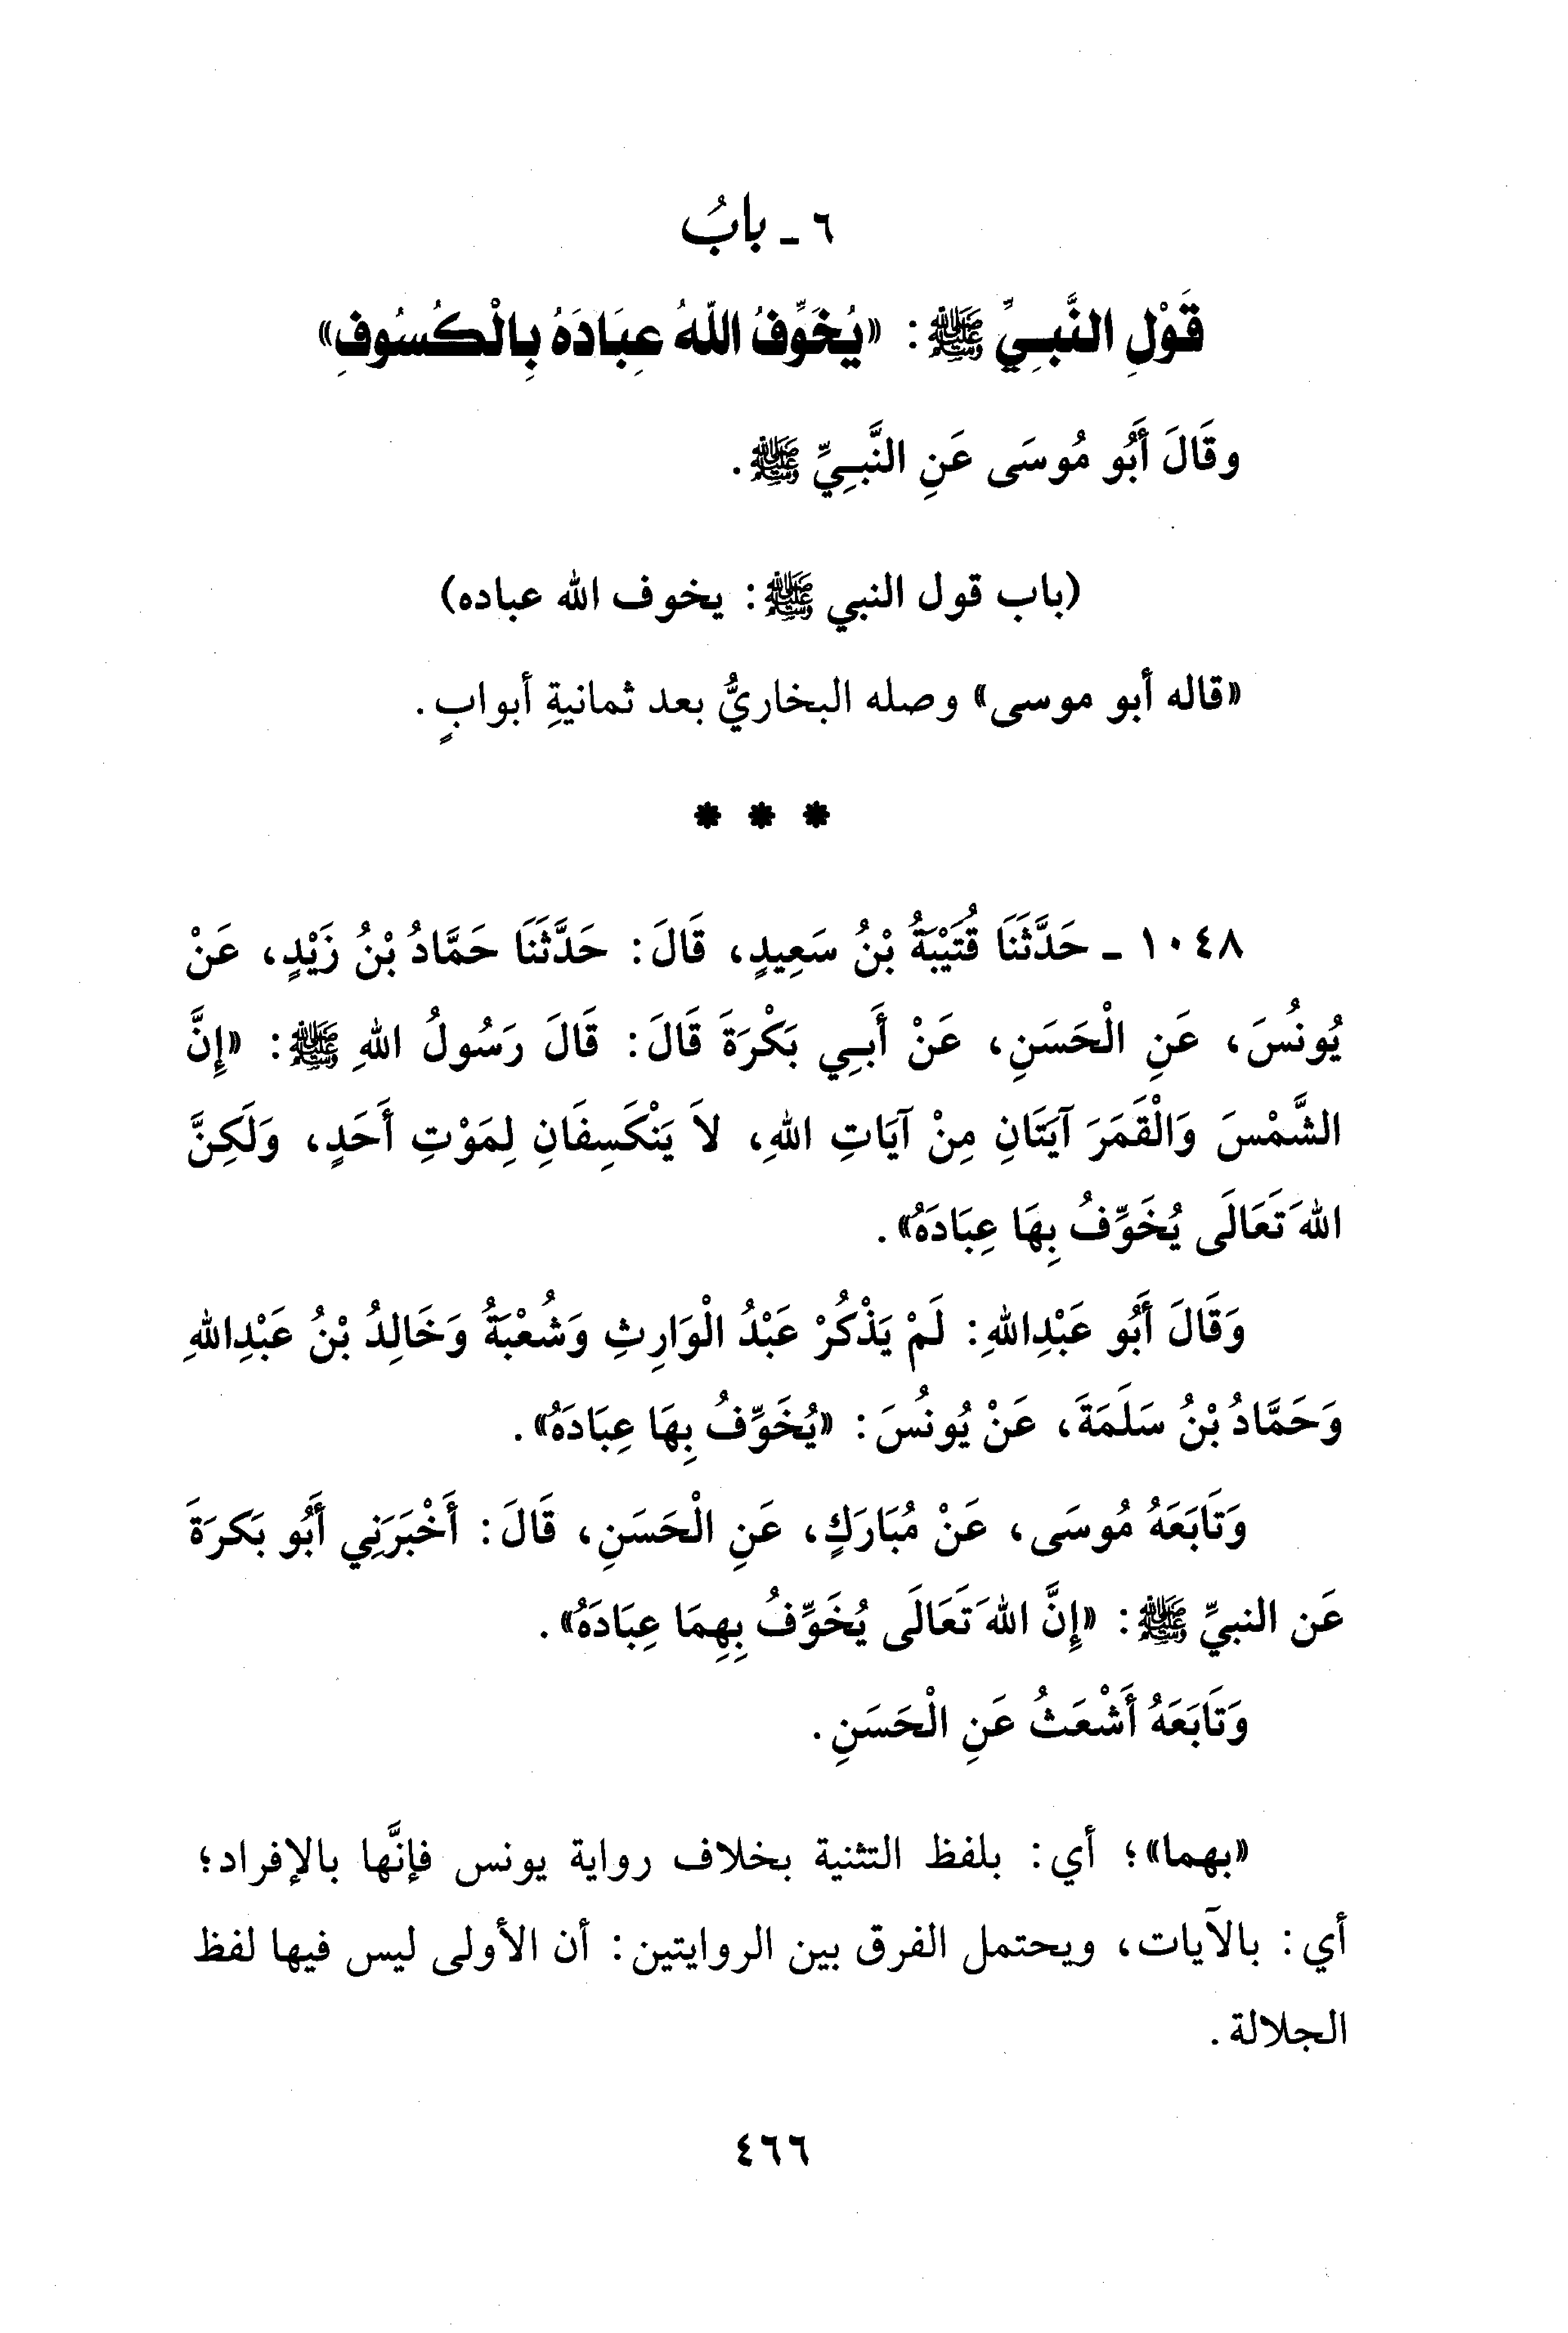 ٦ - بابُ
قَوْلِ النَّبِيِّ ﷺ: «يُخَوِّفُ اللهُ عِبَادَهُ بِالْكُسُوفِ»
وقَالَ أَبُو مُوسَى عَنِ النَّبِيِّ ﷺ.
(باب قول النبي ﷺ: يخوف الله عباده)
«قاله أبو موسى» وصله البخاريُّ بعد ثمانيةِ أبوابٍ.
* * *
١٠٤٨ - حَدَّثَنَا قُتَيْبَةُ بْنُ سَعِيدٍ، قَالَ: حَدَّثَنَا حَمَّادُ بْنُ زَيْدٍ، عَنْ
يُونُسَ، عَنِ الْحَسَنِ، عَنْ أَبِي بَكْرَةَ قَالَ: قَالَ رَسُولُ اللهِ ﷺ: «إِنَّ
الشَّمْسَ وَالْقَمَرَ آيَتَانِ مِنْ آيَاتِ اللهِ، لاَ يَنْكَسِفَانِ لِمَوْتِ أَحَدٍ، وَلَكِنَّ
اللهَ تَعَالَى يُخَوِّفُ بِهَا عِبَادَهُ».
وَقَالَ أَبُو عَبْدِاللهِ: لَمْ يَذْكُرْ عَبْدُ الْوَارِثِ وَشُعْبَةُ وَخَالِدُ بْنُ عَبْدِاللهِ
وَحَمَّادُ بْنُ سَلَمَةَ، عَنْ يُونُسَ: «يُخَوِّفُ بِهَا عِبَادَهُ».
وَتَابَعَهُ مُوسَى، عَنْ مُبَارَكٍ، عَنِ الْحَسَنِ، قَالَ: أَخْبَرَنِي أَبُو بَكرَةَ
عَن النبيِّ ﷺ: «إِنَّ اللهَ تَعَالَى يُخَوِّفُ بِهِمَا عِبَادَهُ».
وَتَابَعَهُ أَشْعَثُ عَنِ الْحَسَنِ.
«بهما»؛ أي: بلفظ التثنية بخلاف رواية يونس فإنَّها بالإفراد؛
أي: بالآيات، ويحتمل الفرق بين الروايتين: أن الأولى ليس فيها لفظ
الجلالة.
٤٦٦